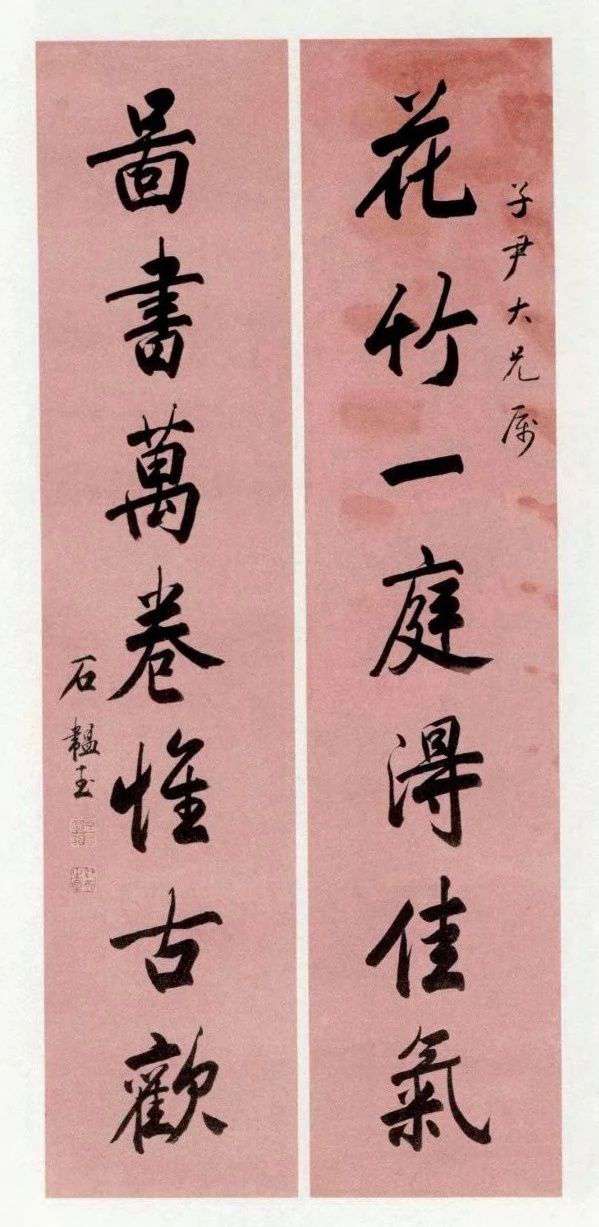 子尹大兄属
花竹一庭得佳氣
圖書萬卷惟古歡
石韞玉